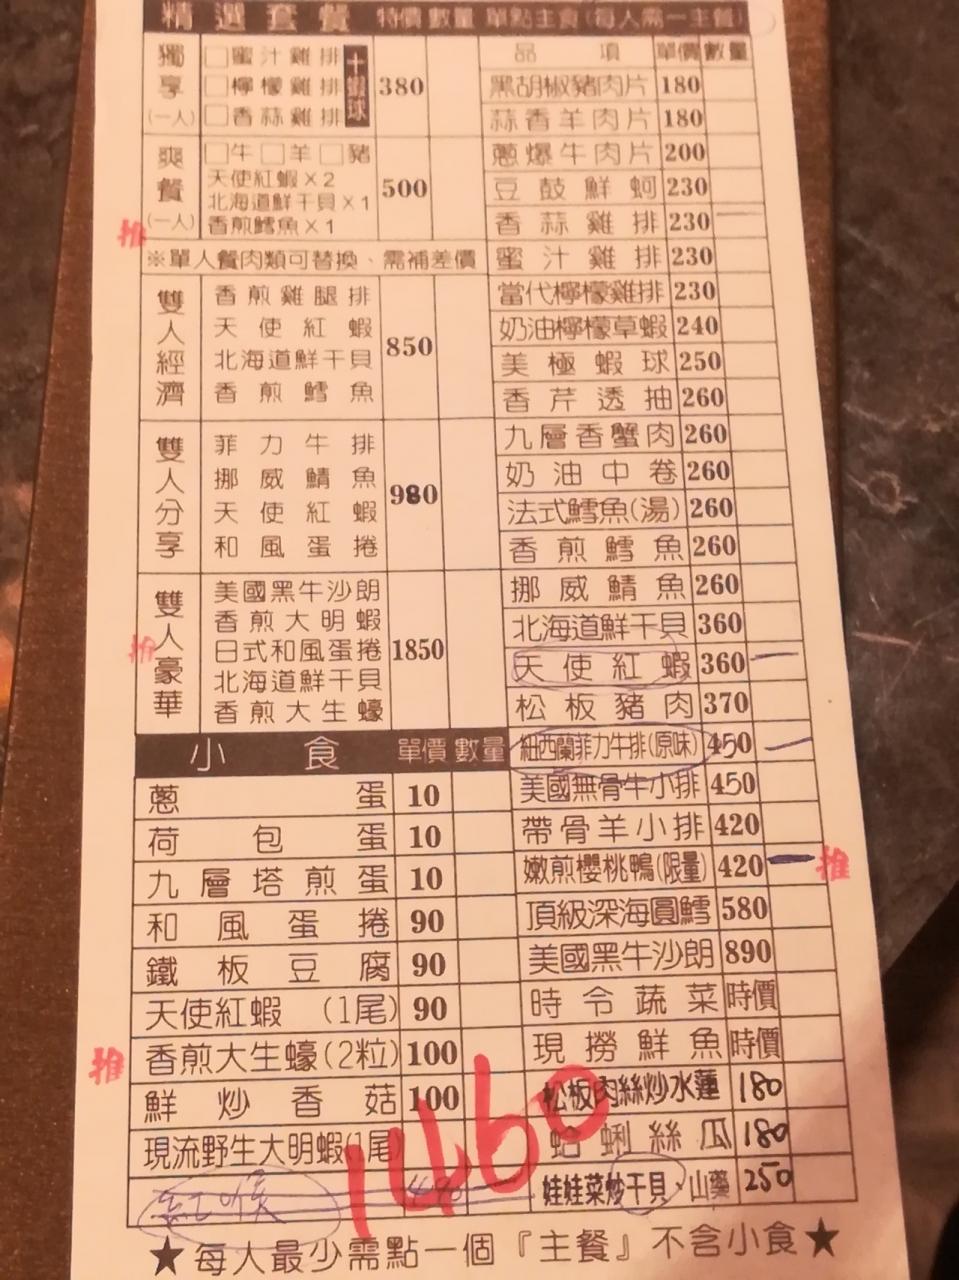 精選套餐 特價 數量
獨享(一人) □蜜汁雞排 □檸檬雞排 □香蒜雞排 十蝦球 380
爽餐(一人) □牛□羊□豬 天使紅蝦×2 北海道鮮干貝×1 香煎鱈魚×1 500
推
※單人餐肉類可替換、需補差價
雙人經濟 香煎雞腿排 天使紅蝦 北海道鮮干貝 香煎鱈魚 850
雙人分享 菲力牛排 挪威鯖魚 天使紅蝦 和風蛋捲 980
雙人豪華 美國黑牛沙朗 香煎大明蝦 日式和風蛋捲 北海道鮮干貝 香煎大生蠔 1850
推
小食 單價 數量
蔥蛋 10
荷包蛋 10
九層塔煎蛋 10
和風蛋捲 90
鐵板豆腐 90
天使紅蝦(1尾) 90
推 香煎大生蠔(2粒) 100
鮮炒香菇 100
現流野生大明蝦(1尾)
1460
單點主食(每人需一主餐)
品項 單價 數量
黑胡椒豬肉片 180
蒜香羊肉片 180
蔥爆牛肉片 200
豆鼓鮮蚵 230
香蒜雞排 230
蜜汁雞排 230
當代檸檬雞排 230
奶油檸檬草蝦 240
美極蝦球 250
香芹透抽 260
九層香蟹肉 260
奶油中卷 260
法式鱈魚(湯) 260
香煎鱈魚 260
挪威鯖魚 260
北海道鮮干貝 360
天使紅蝦 360 一
松板豬肉 370
紐西蘭菲力牛排(原味) 450 一
美國無骨牛小排 450
帶骨羊小排 420
嫩煎櫻桃鴨(限量) 420 一 推
頂級深海圓鱈 580
美國黑牛沙朗 890
時令蔬菜 時價
現撈鮮魚 時價
松板肉絲炒水蓮 180
蛤蜊絲瓜 180
娃娃菜炒干貝、山藥 250
★每人最少需點一個『主餐』不含小食★